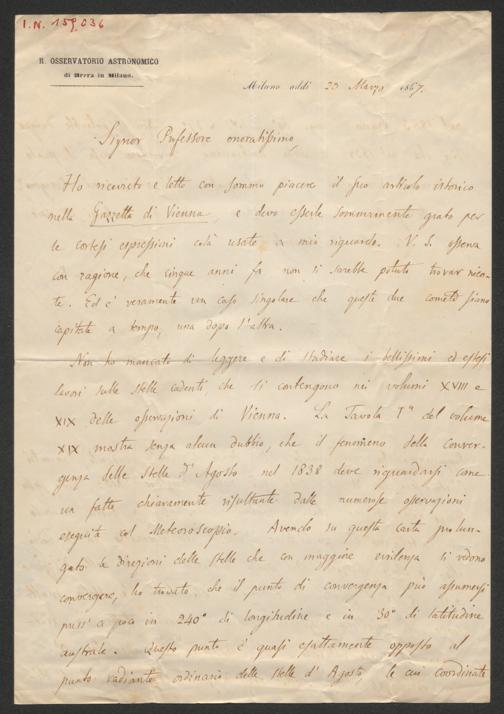 I.N. 159.036
R. OSSERVATORIO ASTRONOMICO
di Brera in Milano.
Milano addì 23 Marzo 1867.
Signor Professore onoratissimo,
Ho ricevuto e letto con sommo piacere il suo articolo istorico
nella Gazzetta di Vienna, e devo esserle sommamente grato per
le cortesi espressioni colà usate a mio riguardo. V. S. osserva
con ragione, che cinque anni fa non si sarebbe potuto trovar
te. Ed è veramente un caso singolare che queste due comete siano
capitate a tempo, una dopo l'altra.
Non ho mancato di leggere e di studiare i bellissimi ed estesi
lavori sulle stelle cadenti che si contengono nei volumi XVIII e
XIX delle osservazioni di Vienna. La Tavola Iª del volume
XIX mostra senza alcun dubbio, che il fenomeno della conver-
genza delle Stelle d'Agosto nel 1838 deve riguardarsi come
un fatto chiaramente risultante dalle numerose osservazioni
eseguite col Meteoroscopio. Avendo su questa carta prolun-
gato le direzioni delle stelle che con maggiore evidenza si vedono
convergere, ho trovato, che il punto di convergenza può assumersi
press'a poco in 240° di longitudine e in 30° di latitudine
australe. Questo punto è quasi esattamente opposto al
punto radiante ordinario delle stelle d'Agosto, le cui coordinate